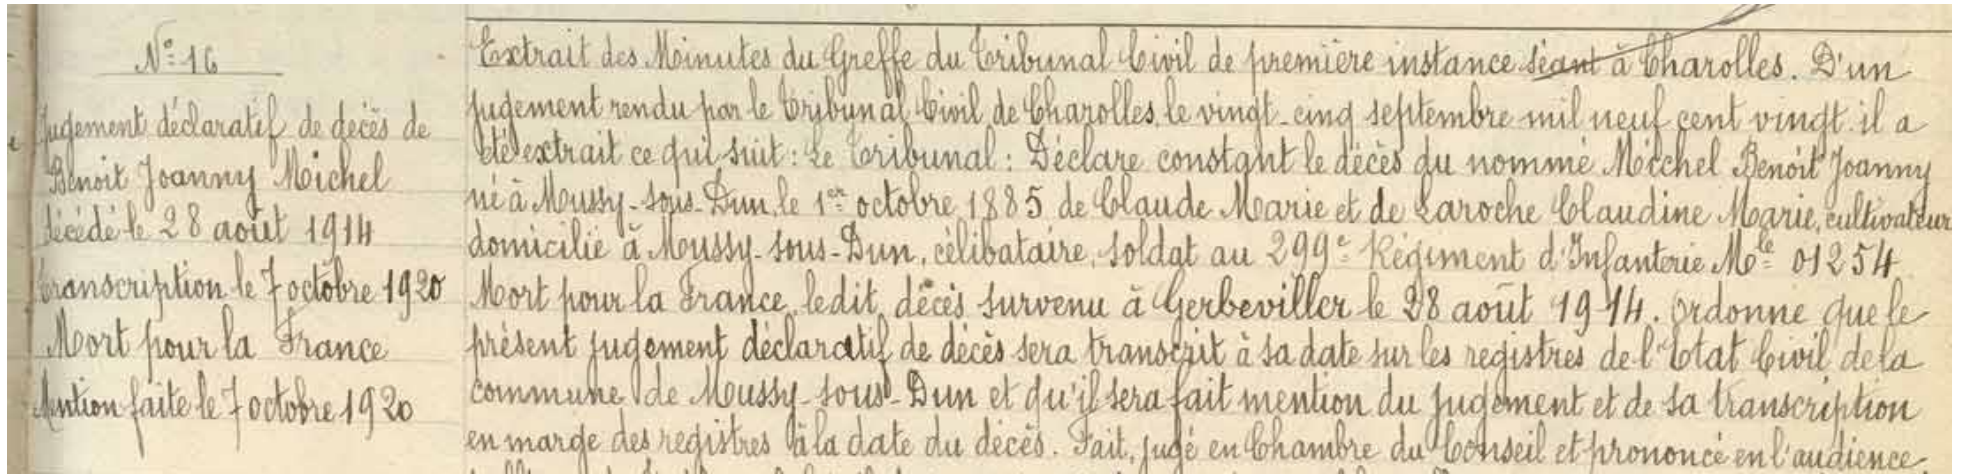 N° 16
Jugement déclaratif de décès de
Benoit Joanny Michel
décédé le 28 août 1914
transcription le 7 octobre 1920
Mort pour la France
Mention faite le 7 octobre 1920
Extrait des Minutes du Greffe du Tribunal Civil de première instance séant à Charolles. D'un
jugement rendu par le Tribunal Civil de Charolles, le vingt-cinq septembre mil neuf cent vingt il a
été extrait ce qui suit : Le Tribunal : Déclare constant le décès du nommé Michel Benoit Joanny
né à Mussy-sous-Dun, le 1er octobre 1885 de Claude Marie et de Laroche Claudine Marie, cultivateur
domicilié à Mussy-sous-Dun, célibataire, soldat au 299e Régiment d'Infanterie Mle 01254
Mort pour la France, ledit décès survenu à Gerbeviller le 28 août 1914. Ordonne que le
présent jugement déclaratif de décès sera transcrit à sa date sur les registres de l'Etat Civil de la
commune de Mussy-sous-Dun et qu'il sera fait mention du jugement et de sa transcription
en marge des registres à la date du décès. Fait, jugé en Chambre du Conseil et prononcé en l'audience